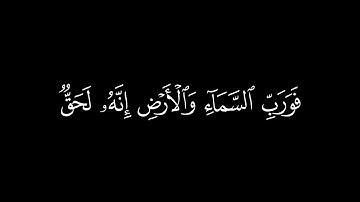 فَوَرَبِّ ٱلسَّمَآءِ وَٱلْأَرْضِ إِنَّهُۥ لَحَقٌّ